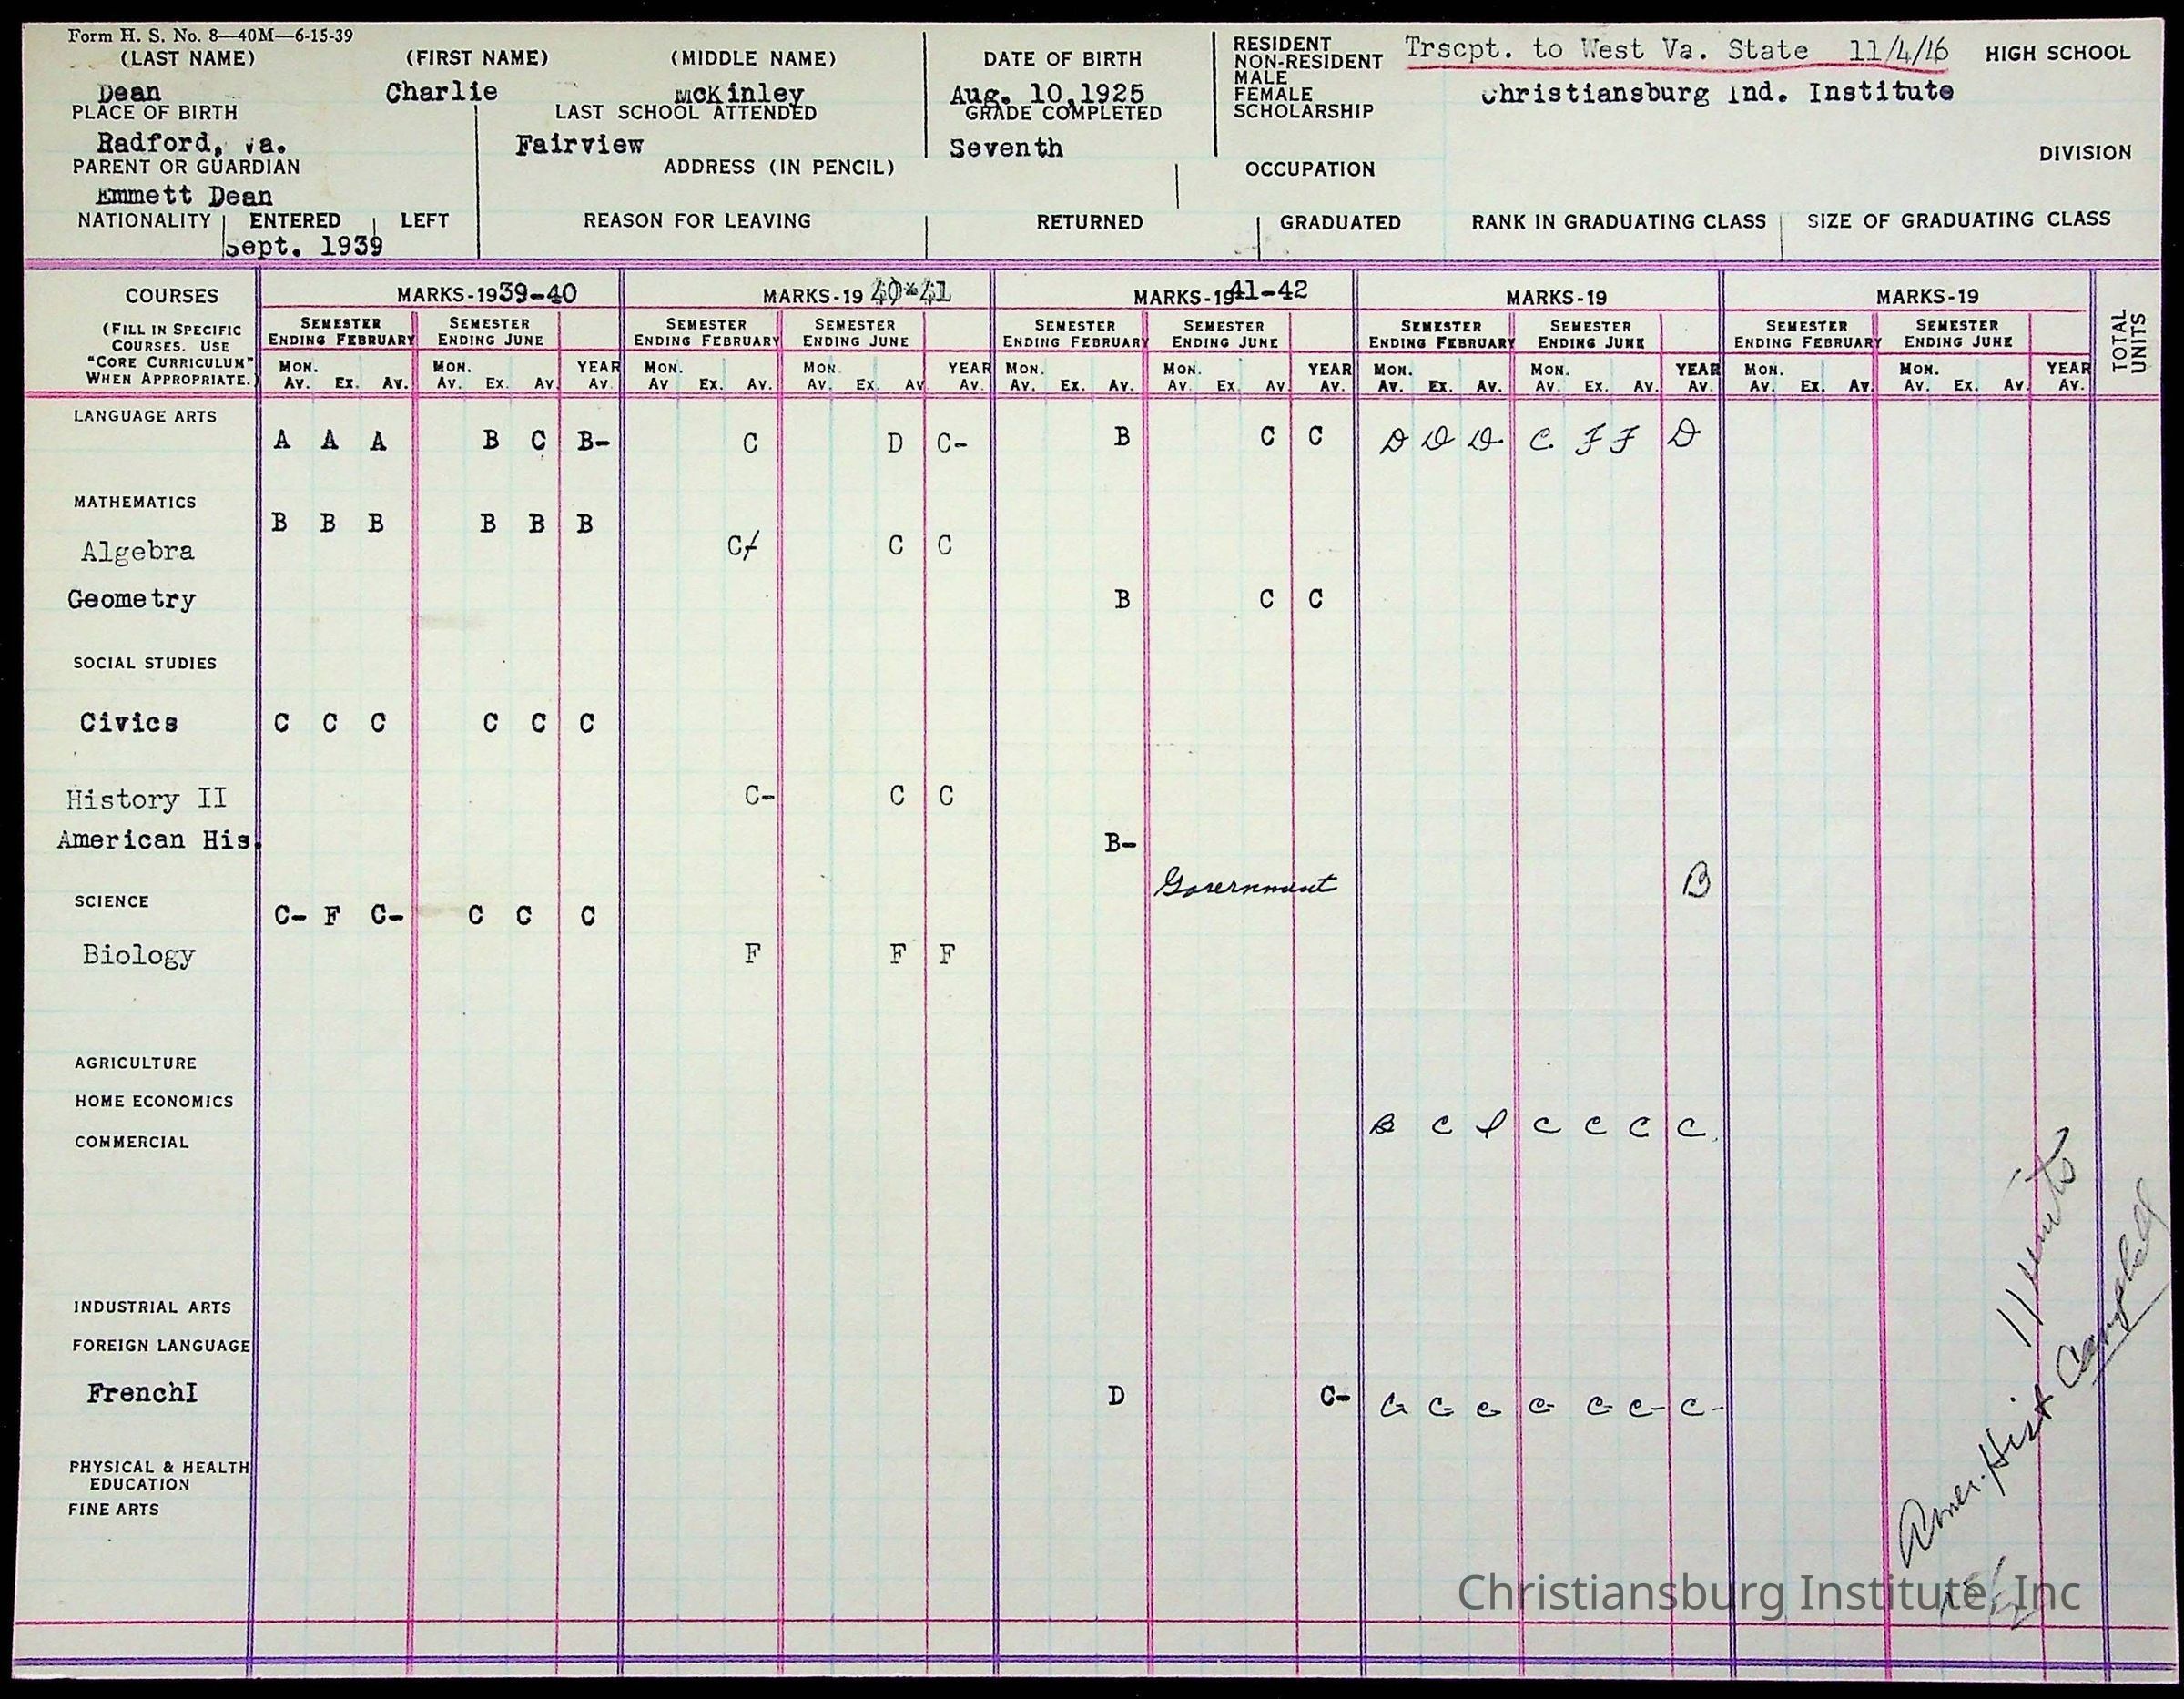 Form H. S. No. 8—40M—6-15-39
(LAST NAME) (FIRST NAME) (MIDDLE NAME) DATE OF BIRTH
RESIDENT
NON-RESIDENT
MALE
FEMALE
SCHOLARSHIP
Trscpt. to West Va. State 11/4/46 HIGH SCHOOL
Dean Charlie McKinley Aug. 10,1925
Christiansburg Ind. Institute
PLACE OF BIRTH LAST SCHOOL ATTENDED GRADE COMPLETED
Radford, Va. Fairview Seventh
DIVISION
PARENT OR GUARDIAN ADDRESS (IN PENCIL) OCCUPATION
Emmett Dean
NATIONALITY ENTERED LEFT REASON FOR LEAVING RETURNED GRADUATED RANK IN GRADUATING CLASS SIZE OF GRADUATING CLASS
Sept. 1939
COURSES MARKS-1939-40 MARKS-19 40-41 MARKS-1941-42 MARKS-19 MARKS-19 TOTAL UNITS
(FILL IN SPECIFIC COURSES. USE "CORE CURRICULUM" WHEN APPROPRIATE.)
SEMESTER ENDING FEBRUARY SEMESTER ENDING JUNE SEMESTER ENDING FEBRUARY SEMESTER ENDING JUNE SEMESTER ENDING FEBRUARY SEMESTER ENDING JUNE SEMESTER ENDING FEBRUARY SEMESTER ENDING JUNE SEMESTER ENDING FEBRUARY SEMESTER ENDING JUNE
MON. AV. EX. AV. MON. AV. EX. AV. YEAR AV. MON. AV EX. AV. MON. AV. EX. AV YEAR AV. MON. AV. EX. AV. MON. AV EX. AV YEAR AV. MON. AV. EX. AV. MON. AV. EX. AV. YEAR AV. MON. AV. EX. AV. MON. AV. EX. AV. YEAR AV.
LANGUAGE ARTS
A A A B C B- C D C- B C C D D D C F F D
MATHEMATICS
B B B B B B
Algebra C+ C C
Geometry B C C
SOCIAL STUDIES
Civics C C C C C C
History II C- C C
American His. B-
Government B
SCIENCE
C- F C- C C C
Biology F F F
AGRICULTURE
HOME ECONOMICS
B C C C C C
COMMERCIAL
INDUSTRIAL ARTS
FOREIGN LANGUAGE
FrenchI D C- C C C C C- C- C-
PHYSICAL & HEALTH EDUCATION
FINE ARTS
11 units
Amer. Hist Campbell
Christiansburg Institute, Inc